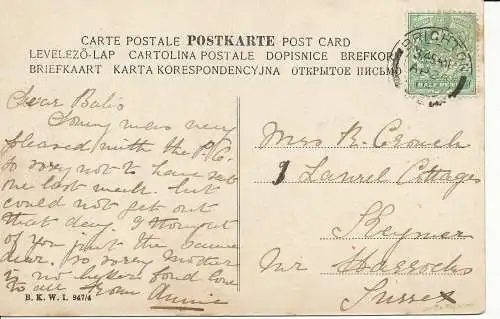 CARTE POSTALE POSTKARTE POST CARD
LEVELEZŐ-LAP CARTOLINA POSTALE DOPISNICE BREFKORT
BRIEFKAART KARTA KORESPONDENCYJNA ОТКРЫТОЕ ПИСЬМО
BRIGHTON
HALFPENNY
Dear Babs
Sonny was very
pleased with the P.C.
so sorry not to have met
one last week. but
could not get out
that day. I thought
of you just the same
dear. so sorry Mother
is no better fond love
to all from Annie
B. K. W. I. 947/4
Mrs R. Crouch
9 Laurel Cottages
Keymer
Nr Hassocks
Sussex